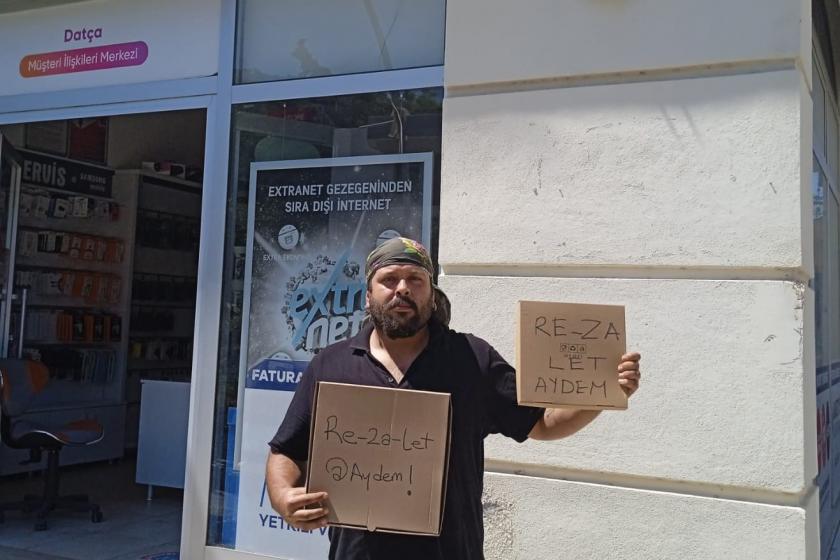 Datça
Müşteri İlişkileri Merkezi
ERVİS
SAMSUNG
EXTRANET GEZEGENİNDEN
SIRA DIŞI İNTERNET
extra
net
FATURA
YETKİLİ
Re-za-let
@Aydem!
RE-ZA
LET
AYDEM